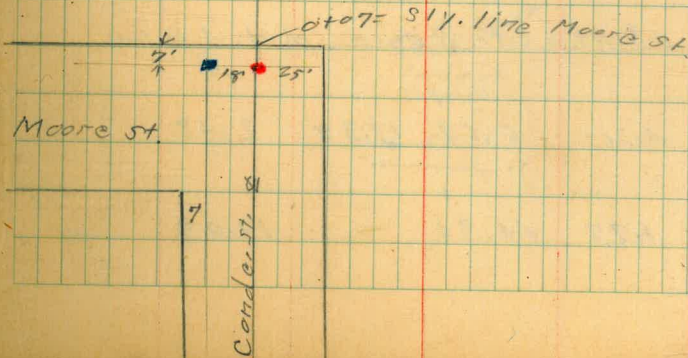 0+07= Sly. line Moore st.
7'
18' 25'
Moore st.
7
Conde st.